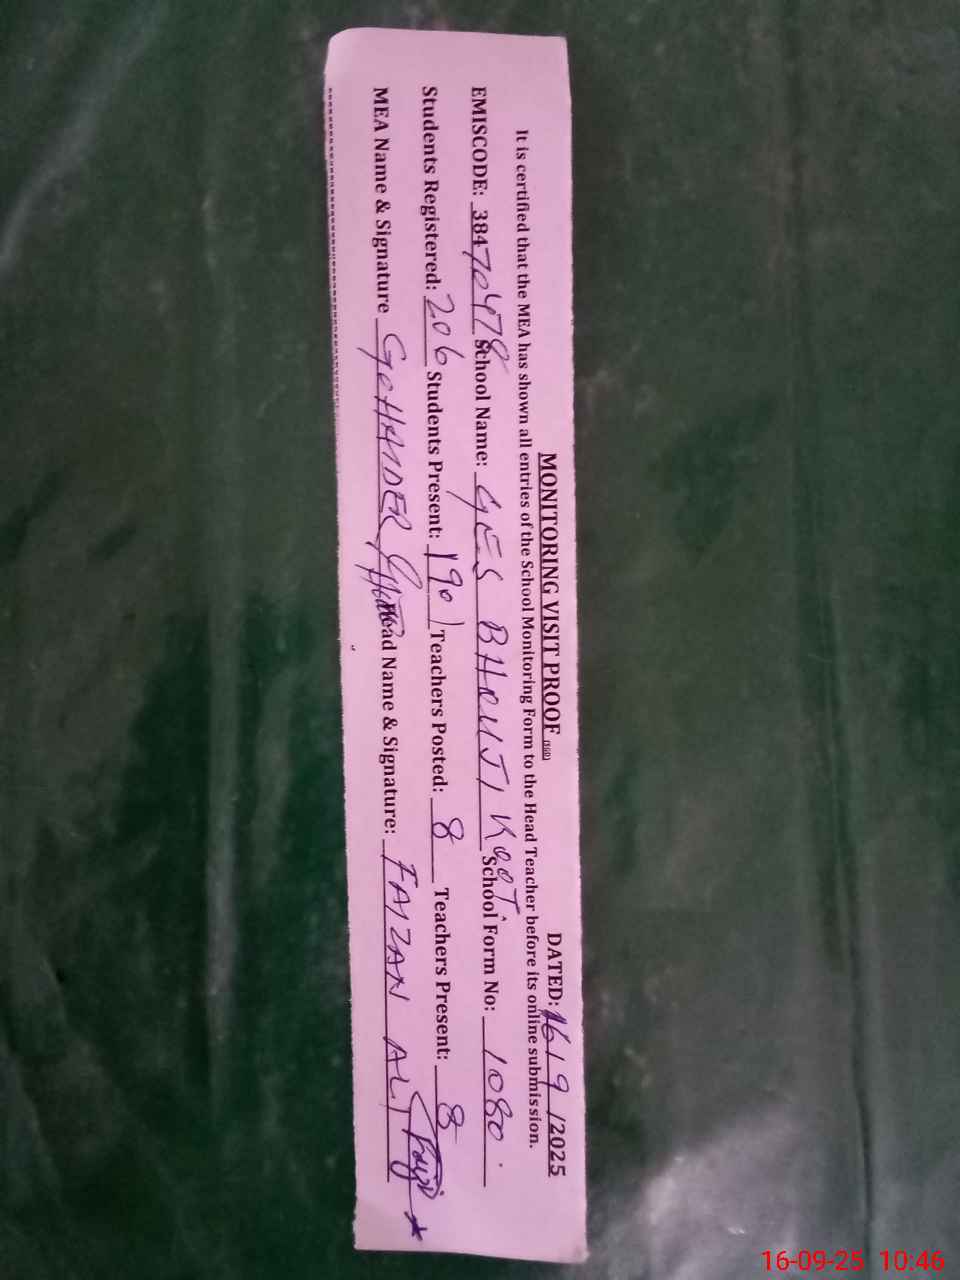 MONITORING VISIT PROOF DATED: 16/9/2025
It is certified that the MEA has shown all entries of the School Monitoring Form to the Head Teacher before its online submission.
EMISCODE: 38470478 School Name: GES BHOUJI KOOT. School Form No: 1080.
Students Registered: 206 Students Present: 190 Teachers Posted: 8 Teachers Present: 8
MEA Name & Signature Head Name & Signature: FAIZAN ALI
16-09-25 10:46